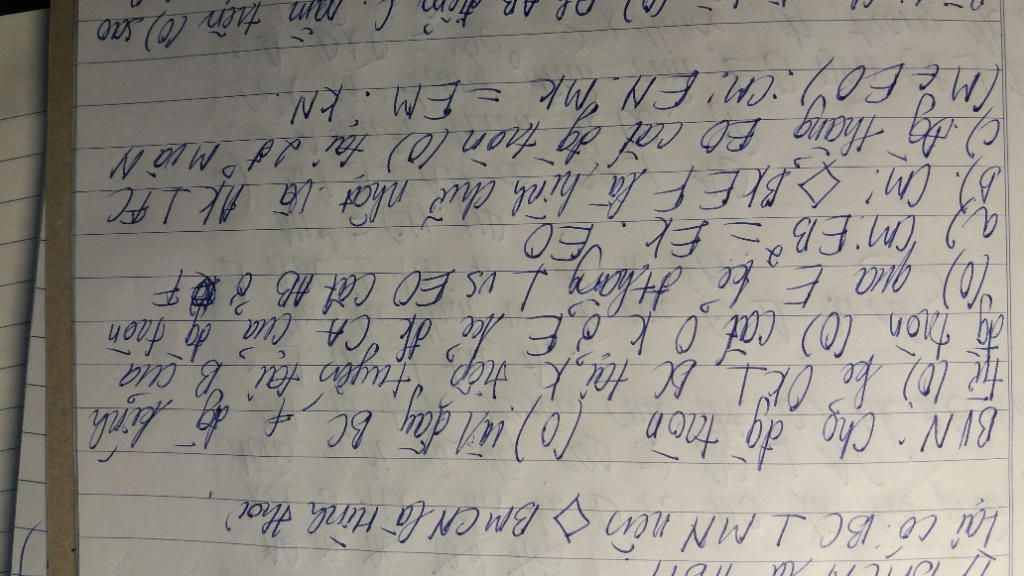 tại có: BC ⊥ MN nên ◇ BMCN là hình thoi)
BVN: Cho đg tròn (O) với dây BC, ≠ đg kính
từ (O) kẻ OK ⊥ BC tại K, tiếp tuyến tại B của
đg tròn (O) cắt O K ở E, kẻ đk CA của đg tròn
(O) qua E kẻ đthẳng ⊥ vs EO cắt AB ở F
a) CM: EB² = EK. EO
B). CM: ◇ BKEF là hình chữ nhật và AK ⊥ FC
c) đg thẳng EO cắt đg tròn (O) tại 2đ M và N
(M ∈ EO) : CM: EN. MK = EM. KN.
AB điểm C nằm trên (O) sao